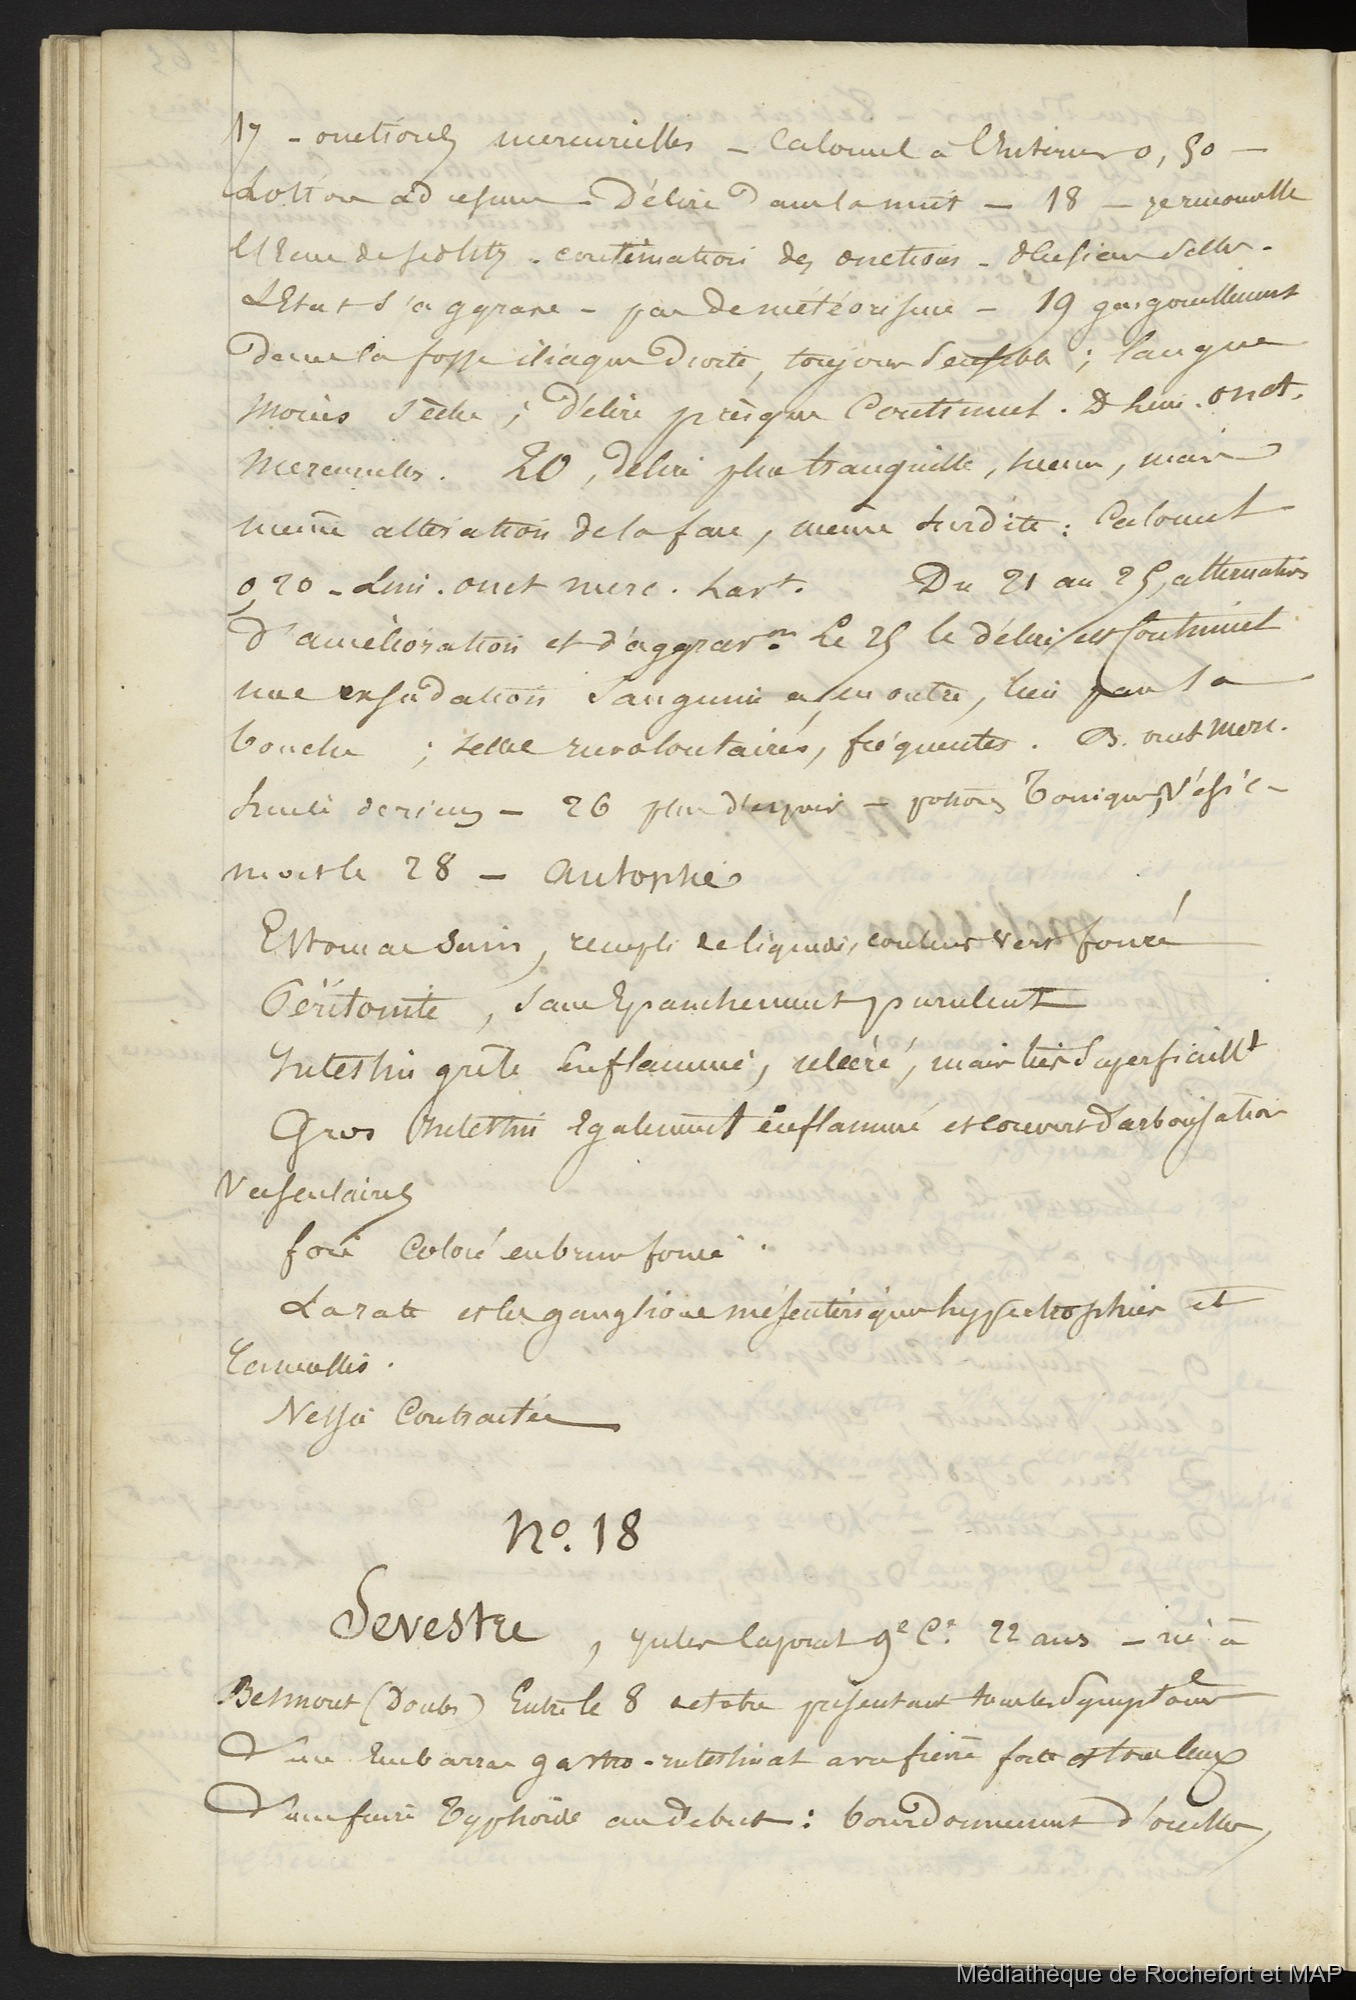 17 - onctions mercurielles - Calomel à l'Interieur 0,50 -
Lotion ad resum - Délire dans la nuit - 18 - je renouvelle
l'Eau de sedlitz - continuation des onctions - Plusieurs selles -
L'Etat s'aggrave - pas de météorisme - 19 gargouillement
dans la fosse iliaque droite, toujours sensible ; langue
moins sèche ; délire presque Continuel. onct.
Mercurielles. 20, délire plus tranquille, mais
même altération de la face, même surdité : Calomel
0,20 - onct merc. Lavt. Du 21 au 25, alternatives
d'amélioration et d'aggravon. Le 25 le délire est Continuel
une exsudation sanguine a, en outre, lieu par la
bouche ; selles involontaires, fréquentes. onct merc.
huile de ricin - 26 plus d'espoir - potions Toniques, Vésic -
mort le 28 - Autopsie
Estomac Sain, rempli de liquide, couleur vert foncé
Péritonite, sans Epanchement purulent
Intestin grêle Enflammé, ulcéré, mais très Superficiellt
Gros Intestin Egalement enflammé et couvert d'arborisations
Vasculaires
foie Coloré en brun foncé.
La rate et les ganglions mésentériques hypertrophiés et
Ramollis.
Vessie Contractée
No. 18
Sevestre, Jules Caporal 9e Cie 22 ans - né à
Belmont (Doubs) Entré le 8 octobre présentant tous les Symptômes
d'un Embarras gastro-intestinal avec fièvre forte et tous ceux
d'une fièvre Typhoïde au début : bourdonnement d'oreilles,
Médiathèque de Rochefort et MAP